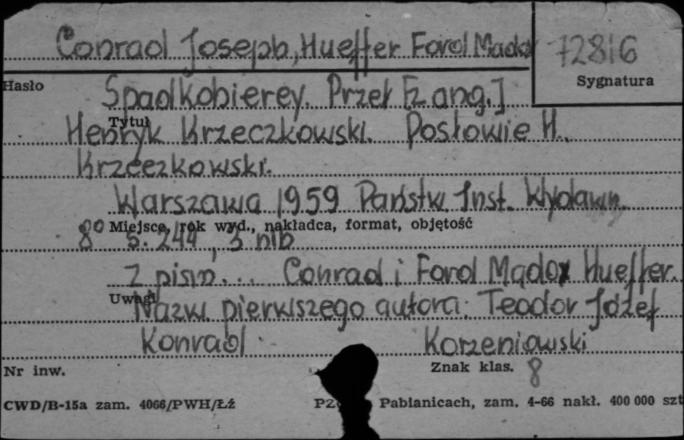 Conrad Joseph, Hueffer Ford Madox
72816
Hasło
Sygnatura
Spadkobiercy. Przeł. [z ang.]
Tytuł
Henryk Krzeczkowski. Posłowie H.
Krzeczkowski.
Warszawa 1959 Państw. Inst. Wydawn.
Miejsce, rok wyd., nakładca, format, objętość
8° s. 244, 3 nlb
Z pism... Conrad i Ford Madox Hueffer.
Uwagi
Nazw. pierwszego autora: Teodor Józef
Konrad Korzeniowski
Nr inw.
Znak klas. 8
CWD/B-15a zam. 4066/PWH/Łż
Pabianicach, zam. 4-66 nakł. 400 000 szt